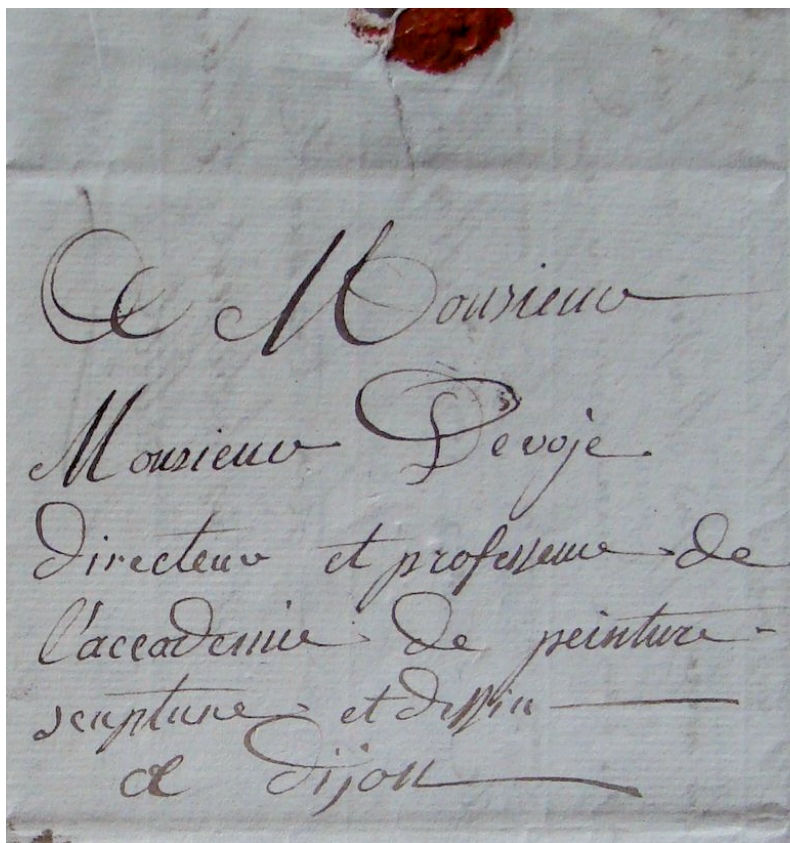 A Monsieur
Monsieur Devoje.
directeur et professeur de
l'accademie de peinture
scupture et dessin
a dijon